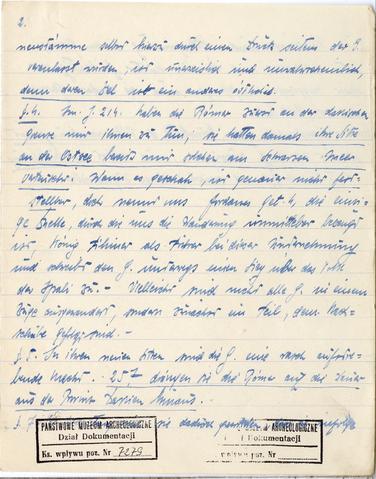 2.
selbst hierzu durch einen Druck seitens der G.
veranlasst wurden, ist unerweislich und unwahrscheinlich,
denn deren Ziel ist ein anderes
J. 214. haben die Römer zuerst an der dacischen
grenze mit ihnen zu tun; sie hatten damals ihre Sitze
an der Ostsee bereits mit solchen am Schwarzen Meer
vertauscht. Wann es geschah, ist genauer nicht fest-
stellbar, doch nennt uns Jordanes Get. 4, die einzi-
ge Quelle, durch die uns die Wanderung unmittelbar bezeugt
ist, König Filimer als bei dieser Unternehmung
und schreibt den G. unterwegs einen Sieg über das Volk
der Spali zu. – Vielleicht sind nicht alle G. in einem
Zuge ausgewandert, sondern zunächst ein Teil, dem Nach-
schübe gefolgt sind. –
In ihren neuen Sitzen sind die G. eine rasch aufstre-
bende Macht. 257 drängen sie die Römer auf die
aus der Provinz Dacien hinaus.
sie dadurch
PAŃSTWOWE MUZEUM ARCHEOLOGICZNE
Dział Dokumentacji
Ks. wpływu poz. Nr 7279
ARCHEOLOGICZNE
Dokumentacji
Ks. wpływu poz. Nr